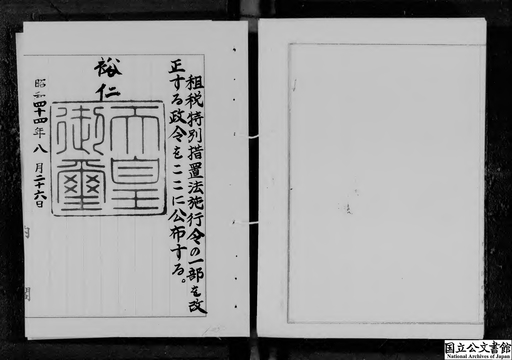 租税特別措置法施行令の一部を改
正する政令をここに公布する。
裕仁
天皇
御璽
昭和四十四年八月二十六日
内閣
国立公文書館
National Archives of Japan